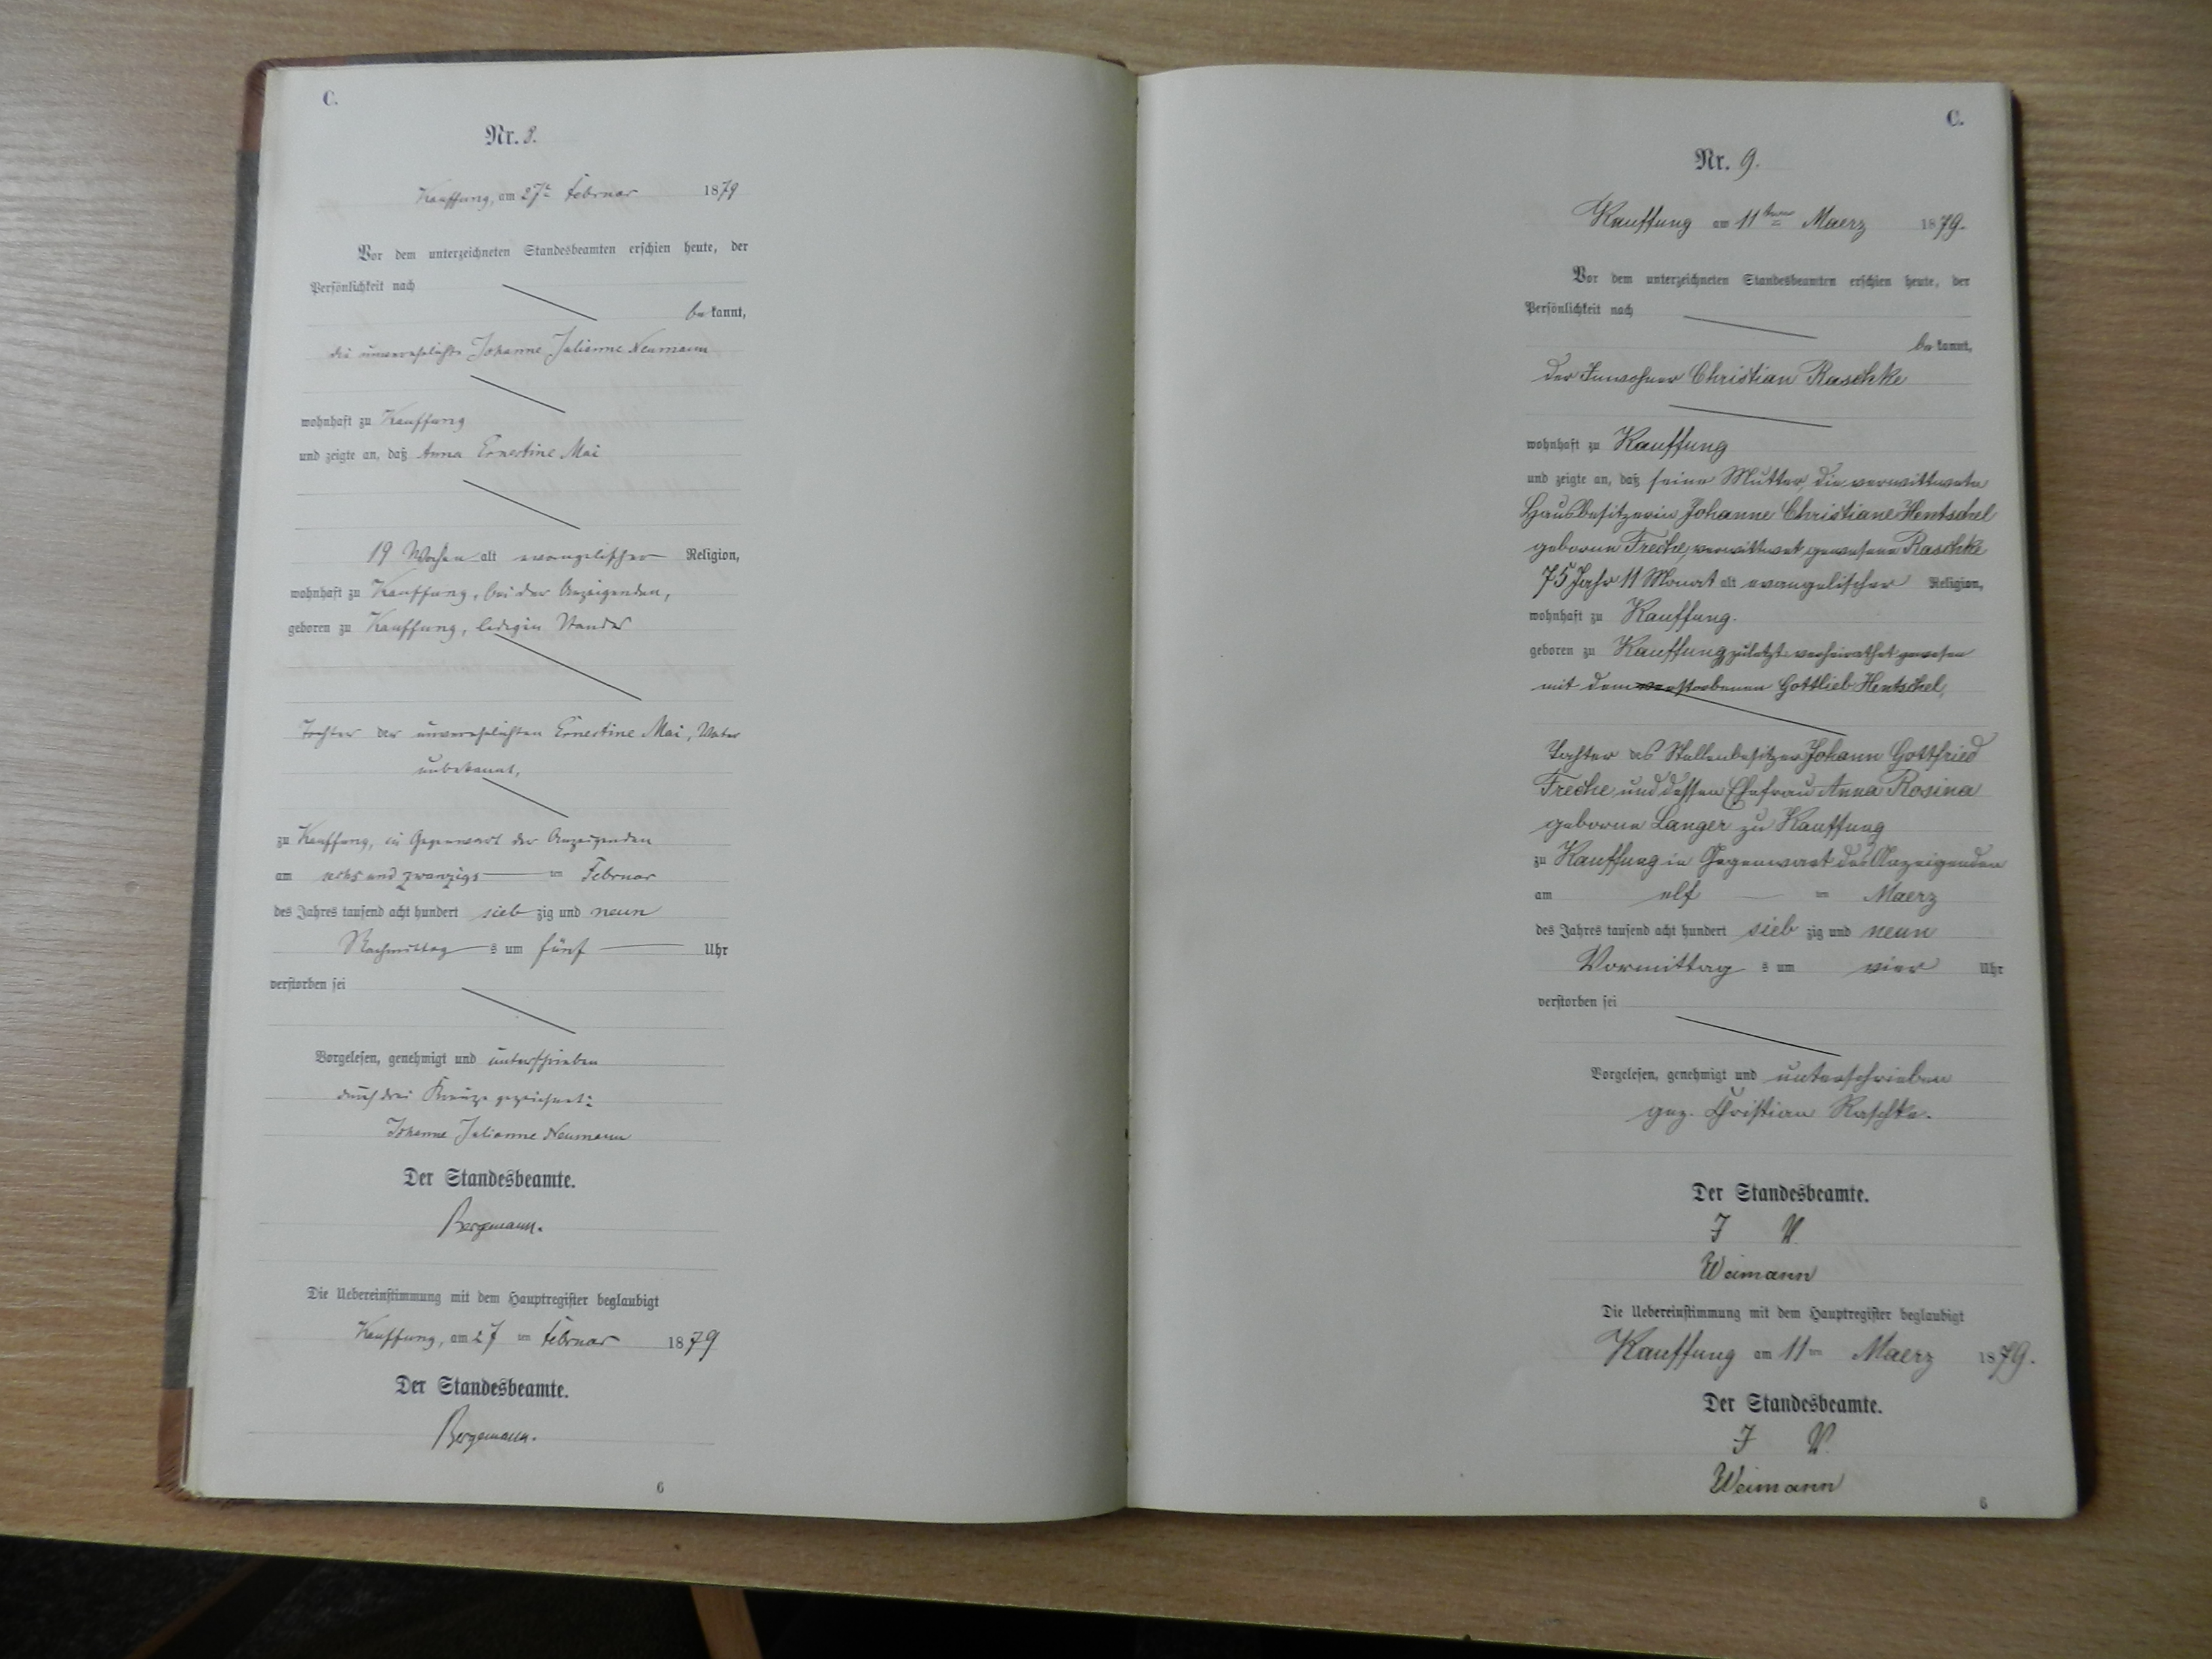 C.
Nr. 8.
Kauffung, am 27ⁿ Februar 1879
Vor dem unterzeichneten Standesbeamten erschien heute, der
Persönlichkeit nach
be kannt,
die unverehelichte Johanne Julianne Neumann
wohnhaft zu Kauffung
und zeigte an, daß Anna Ernestine Mai
19 Wochen alt evangelischer Religion,
wohnhaft zu Kauffung, bei der Anzeigenden,
geboren zu Kauffung, ledigen Standes
Tochter der unverehelichten Ernestine Mai, Vater
unbekannt,
zu Kauffung, in Gegenwart der Anzeigenden
am sechs und zwanzigs ten Februar
des Jahres tausend acht hundert sieb zig und neun
Nachmittag s um fünf Uhr
verstorben sei
Vorgelesen, genehmigt und unterschrieben
durch drei Kreuze gezeichnet:
Johanne Julianne Neumann
Der Standesbeamte.
Bergemann.
Die Uebereinstimmung mit dem Hauptregister beglaubigt
Kauffung, am 27 ten Februar 1879
Der Standesbeamte.
Bergemann.
6
C.
Nr. 9.
Kauffung am 11 ten Maerz 1879.
Vor dem unterzeichneten Standesbeamten erschien heute, der
Persönlichkeit nach
be kannt,
der Inwohner Christian Raschke
wohnhaft zu Kauffung
und zeigte an, daß seine Mutter, die verwittwete
Hausbesitzerin Johanne Christiane Hentschel
geborne Freche, verwittwet gewesene Raschke
75 Jahr 11 Monat alt evangelischer Religion,
wohnhaft zu Kauffung.
geboren zu Kauffung zuletzt verheirathet gewesen
mit dem verstorbenen Gottlieb Hentschel,
Tochter des Stellenbesitzer Johann Gottfried
Freche, und dessen Ehefrau Anna Rosina
geborne Langer zu Kauffung
zu Kauffung in Gegenwart des Anzeigenden
am elf ten Maerz
des Jahres tausend acht hundert sieb zig und neun
Vormittag s um vier Uhr
verstorben sei
Vorgelesen, genehmigt und unterschrieben
gez. Christian Raschke.
Der Standesbeamte.
I V.
Weimann
Die Uebereinstimmung mit dem Hauptregister beglaubigt
Kauffung am 11 ten Maerz 1879.
Der Standesbeamte.
I V.
Weimann
6